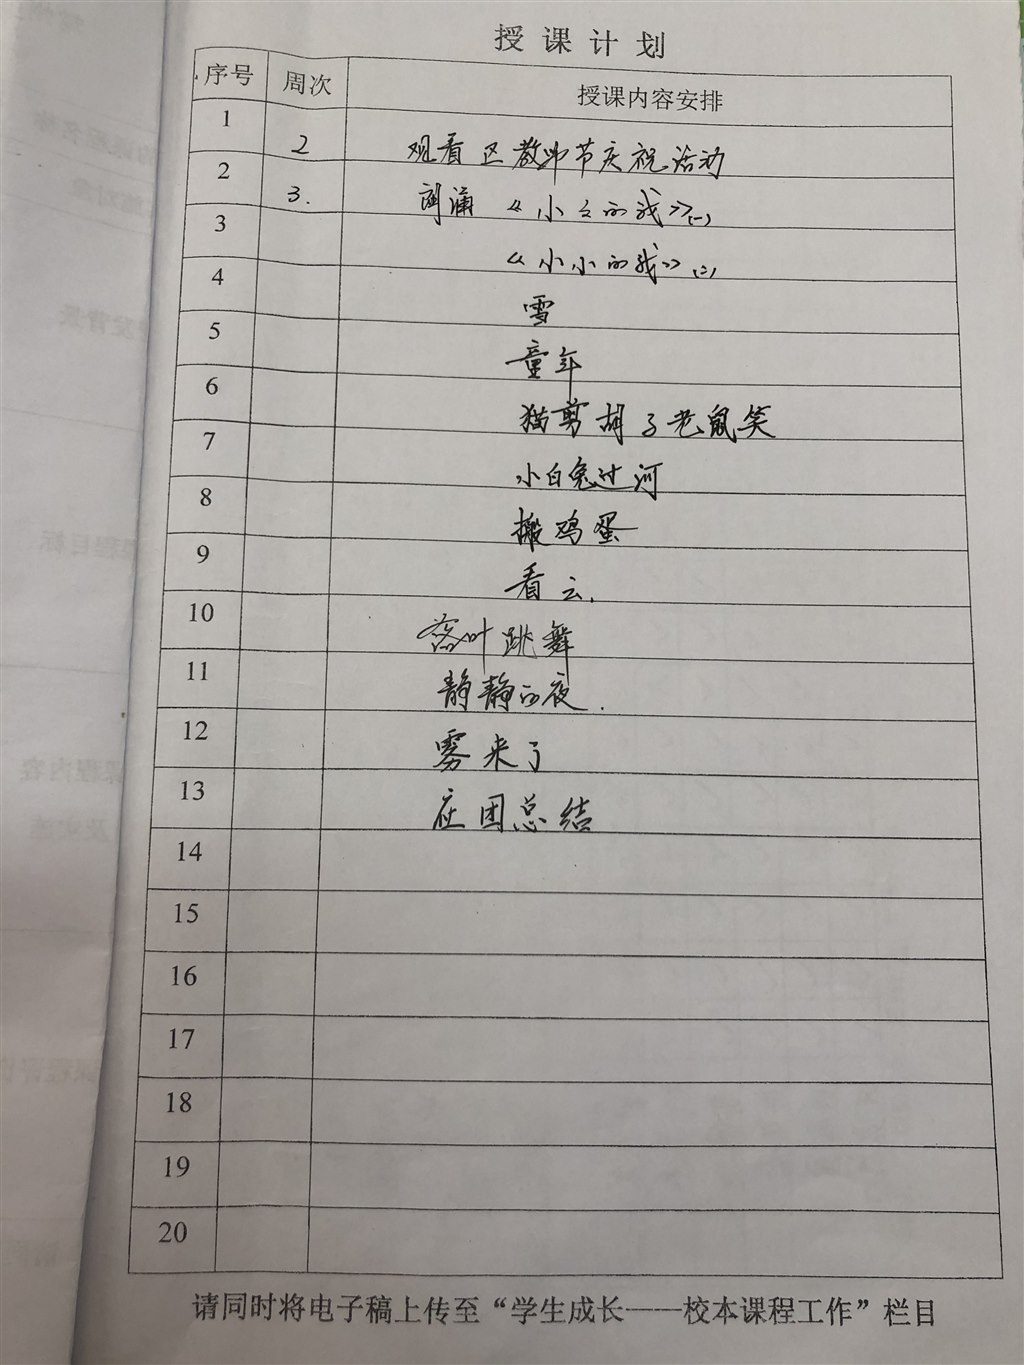 授课计划
序号 周次 授课内容安排
1 2 观看区教师节庆祝活动
2 3. 朗诵《小小的我》(一)
3 《小小的我》(二)
4 雪
5 童年
6 猫剪胡子老鼠笑
7 小白兔过河
8 搬鸡蛋
9 看云.
10 落叶跳舞
11 静静的夜.
12 雾来了
13 社团总结
14
15
16
17
18
19
20
请同时将电子稿上传至“学生成长——校本课程工作”栏目